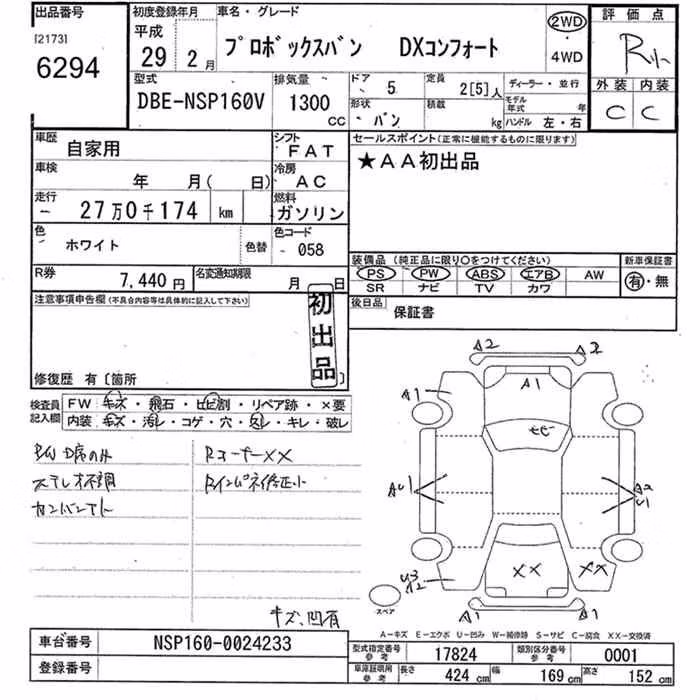 出品番号
[2173]
6294
初度登録年月
平成
29 2月
車名・グレード
プロボックスバン DXコンフォート
2WD
・
4WD
評価点
R小
外装 内装
C C
型式
DBE-NSP160V
排気量
1300
CC
ドア 5
形状 バン
定員 2[5]人
積載 kg
ディーラー・並行
モデル年式 年
ハンドル 左・右
車歴 自家用
シフト FAT
車検 年 月( 日)
冷房 AC
走行 27万0千174 km
燃料 ガソリン
色 ホワイト
色替
色コード 058
R券 7,440円
名変通知期限 月 日
セールスポイント(正常に機能するものに限ります)
★AA初出品
装備品 (純正品に限り○をつけてください)
PS PW ABS エアB AW
SR ナビ TV カワ
新車保証書
有・無
後日品 保証書
注意事項申告欄(不具合内容等は具体的に記入して下さい)
初出品
修復歴 有[箇所 ]
検査員記入欄
FW キズ・飛石・ヒビ割・リペア跡・×要
内装 キズ・汚レ・コゲ・穴・スレ・キレ・破レ
P/W D席のみ
ステレオ不調
カンバンアト
RコーナーXX
Rインパネ修正小
キズ、凹有
A2 A2
A1
A1
ヒビ
AU1
A2
U1
U3
A2
XX XX
A1 A1
スペア
A-キズ E-エクボ U-凹み W-補修跡 S-サビ C-腐食 XX-交換済
車台番号 NSP160-0024233
登録番号
型式指定番号 参考 17824
類別区分番号 参考 0001
車庫証明用 参考 長さ 424 cm 幅 169 cm 高さ 152 cm